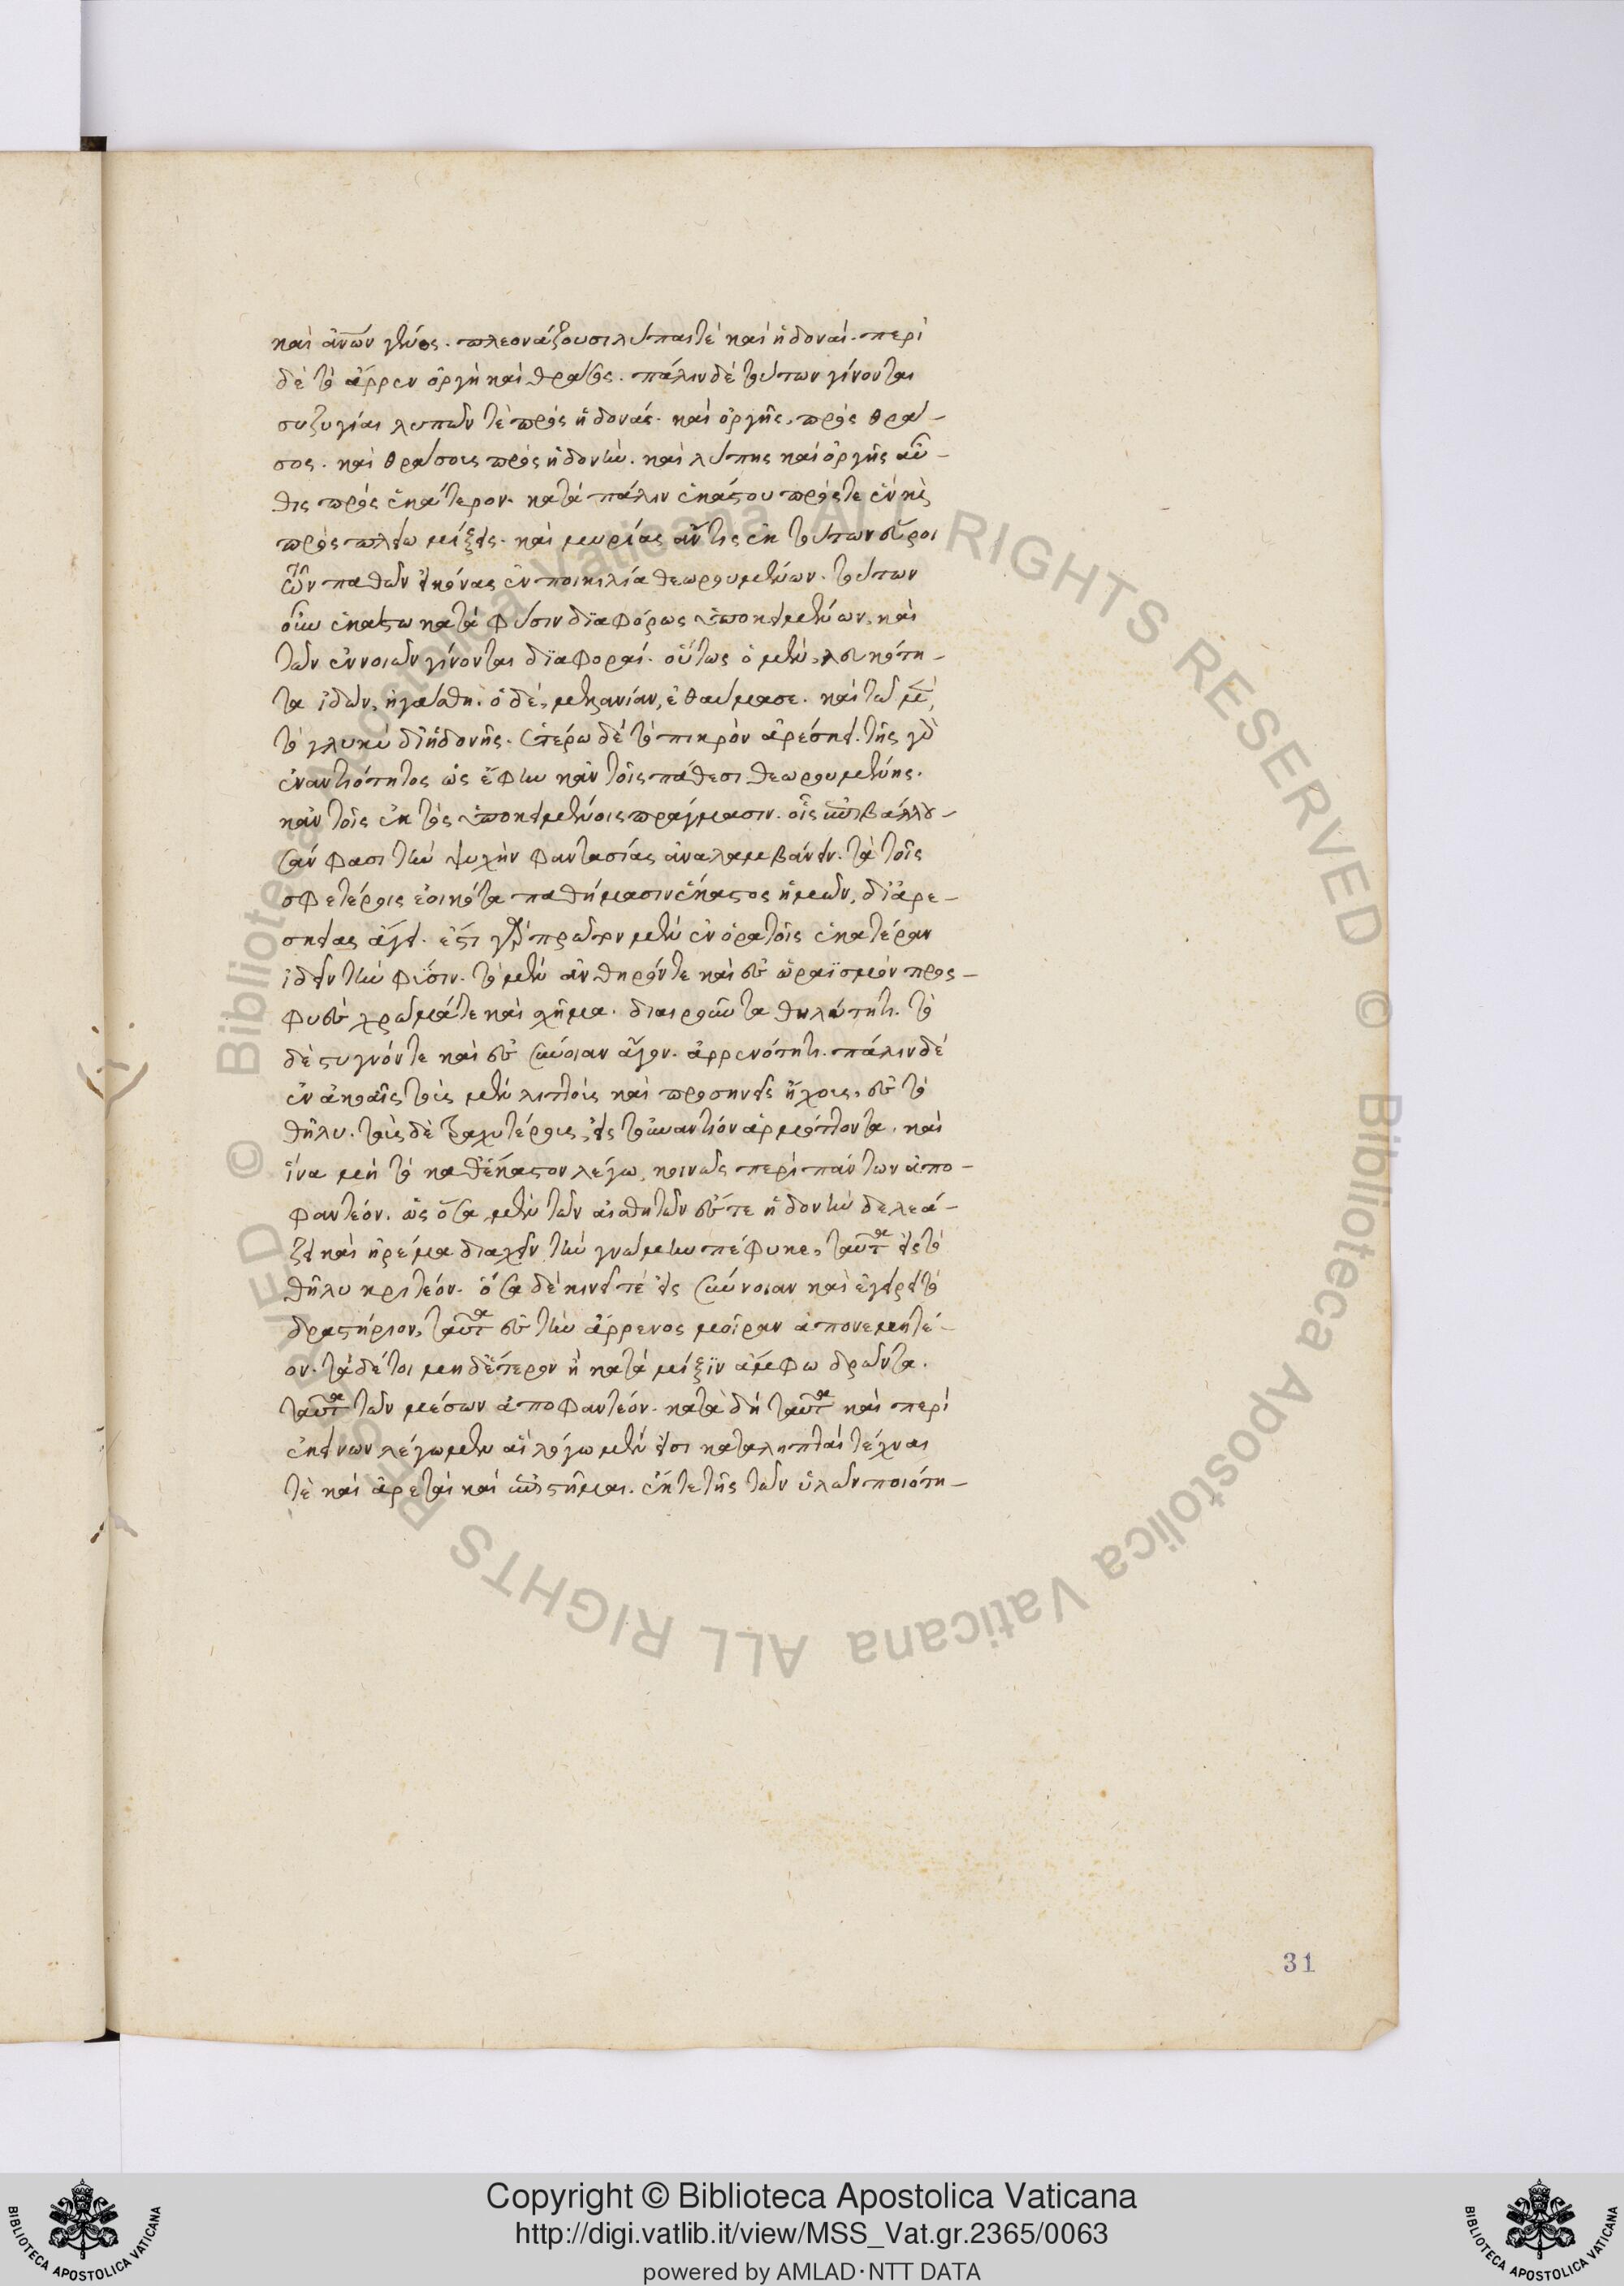 καὶ ἀνῶν γένος. πλεονάζουσι λύπαι τὲ καὶ ἡδοναί. περὶ
δὲ τὸ ἄρρεν ὀργὴ καὶ θράσος. πάλιν δὲ τούτων γίνονται
συζυγίαι λυπῶν τὲ πρὸς ἡδονάς. καὶ ὀργῆς, πρὸς θρά-
σος. καὶ θράσους πρὸς ἡδονήν. καὶ λύπης καὶ ὀργῆς αὖ-
θις πρὸς ἑκάτερον. κατὰ πάλιν ἑκάστου πρός τε ἓν καὶ
πρὸς πλείω μίξεις. καὶ μυρίας ἄν τις ἐκ τούτων εὕροι
τῶν παθῶν εἰκόνας ἐν ποικιλία θεωρουμένων. τούτων
οὖν ἑκάστω κατὰ φύσιν διαφόρως ὑποκειμένων, καὶ
τῶν ἐννοιῶν γίνονται διαφοραί. οὕτως ὁ μὲν, λευκότη-
τα ἰδὼν, ἠγάσθη. ὁ δὲ, μελανίαν, ἐθαύμασε. καὶ τῶ μὲν,
τὸ γλυκὺ δι' ἡδονῆς. ἑτέρω δὲ τὸ πικρὸν ἀρέσκει. τῆς γὰρ
ἐναντιότητος ὡς ἔφην κἀν τοῖς πάθεσι θεωρουμένης.
κἀν τοῖς ἐκτὸς ὑποκειμένοις πράγμασιν. οἷς ἐπιβάλλου-
σάν φασι τὴν ψυχὴν φαντασίας ἀναλαμβάνειν. τὰ τοῖς
σφετέροις ἐοικότα παθήμασιν ἕκαστος ἡμῶν, δι' ἀρε-
σκείας ἄγει. ἔστι γὰρ πρῶτον μὲν ἐν ὁρατοῖς ἑκατέραν
ἰδεῖν τὴν φύσιν. τὸ μὲν ἀνθηρόν τε καὶ εἰς ὡραϊσμὸν προσ-
φυὲς χρῶμά τε καὶ σχῆμα. διαιροῦντα θηλύτητι. τὸ
δὲ στυγνόν τε καὶ εἰς σύννοιαν ἄγον. ἀρρενότητι. πάλιν δὲ
ἐν ἀκοαῖς τοὺς μὲν λεπτοὺς καὶ προσηνεῖς ἤχους, εἰς τὸ
θῆλυ. τοὺς δὲ τραχυτέρους, εἰς τοὐναντίον ἁρμόττοντα. καὶ
ἵνα μὴ τὸ καθέκαστον λέγω, κοινῶς περὶ πάντων ἀπο-
φαντέον. ὡς ὅσα μὲν τῶν αἰσθητῶν εἴς τε ἡδονὴν δελεά-
ζει καὶ ἠρέμα διαχεῖν τὴν γνώμην πέφυκε, ταῦτα εἰς τὸ
θῆλυ κριτέον. ὅσα δὲ κινεῖ τὲ εἰς σύννοιαν καὶ ἐγείρει τὸ
δραστήριον, ταῦτα εἰς τὴν ἄρρενος μοῖραν ἀπονεμητέ-
ον. τὰ δέ τοι μηδέτερον ἢ κατὰ μίξιν ἄμφω δρῶντα.
ταῦτα τῶν μέσων ἀποφαντέον. κατὰ δὴ ταῦτα καὶ περὶ
ἐκείνων λέγωμεν αἳ λόγω μέν εἰσι καταληπταὶ τέχναι
τὲ καὶ ἀρεταὶ καὶ ἐπιστῆμαι. ἔκ τε τῆς τῶν ὑλῶν ποιότη-
31
Copyright © Biblioteca Apostolica Vaticana
http://digi.vatlib.it/view/MSS_Vat.gr.2365/0063
powered by AMLAD·NTT DATA